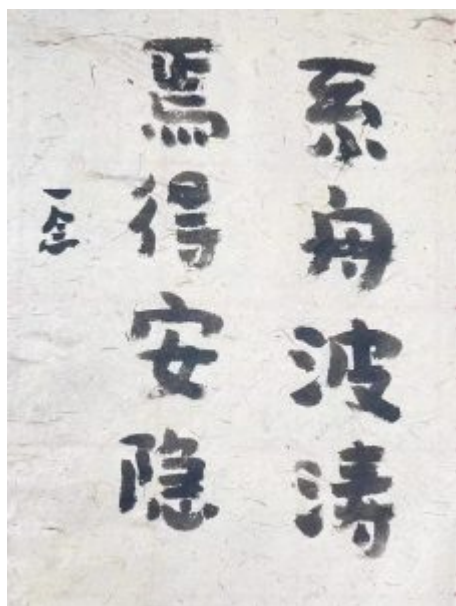 系舟波涛
焉得安隐
一念